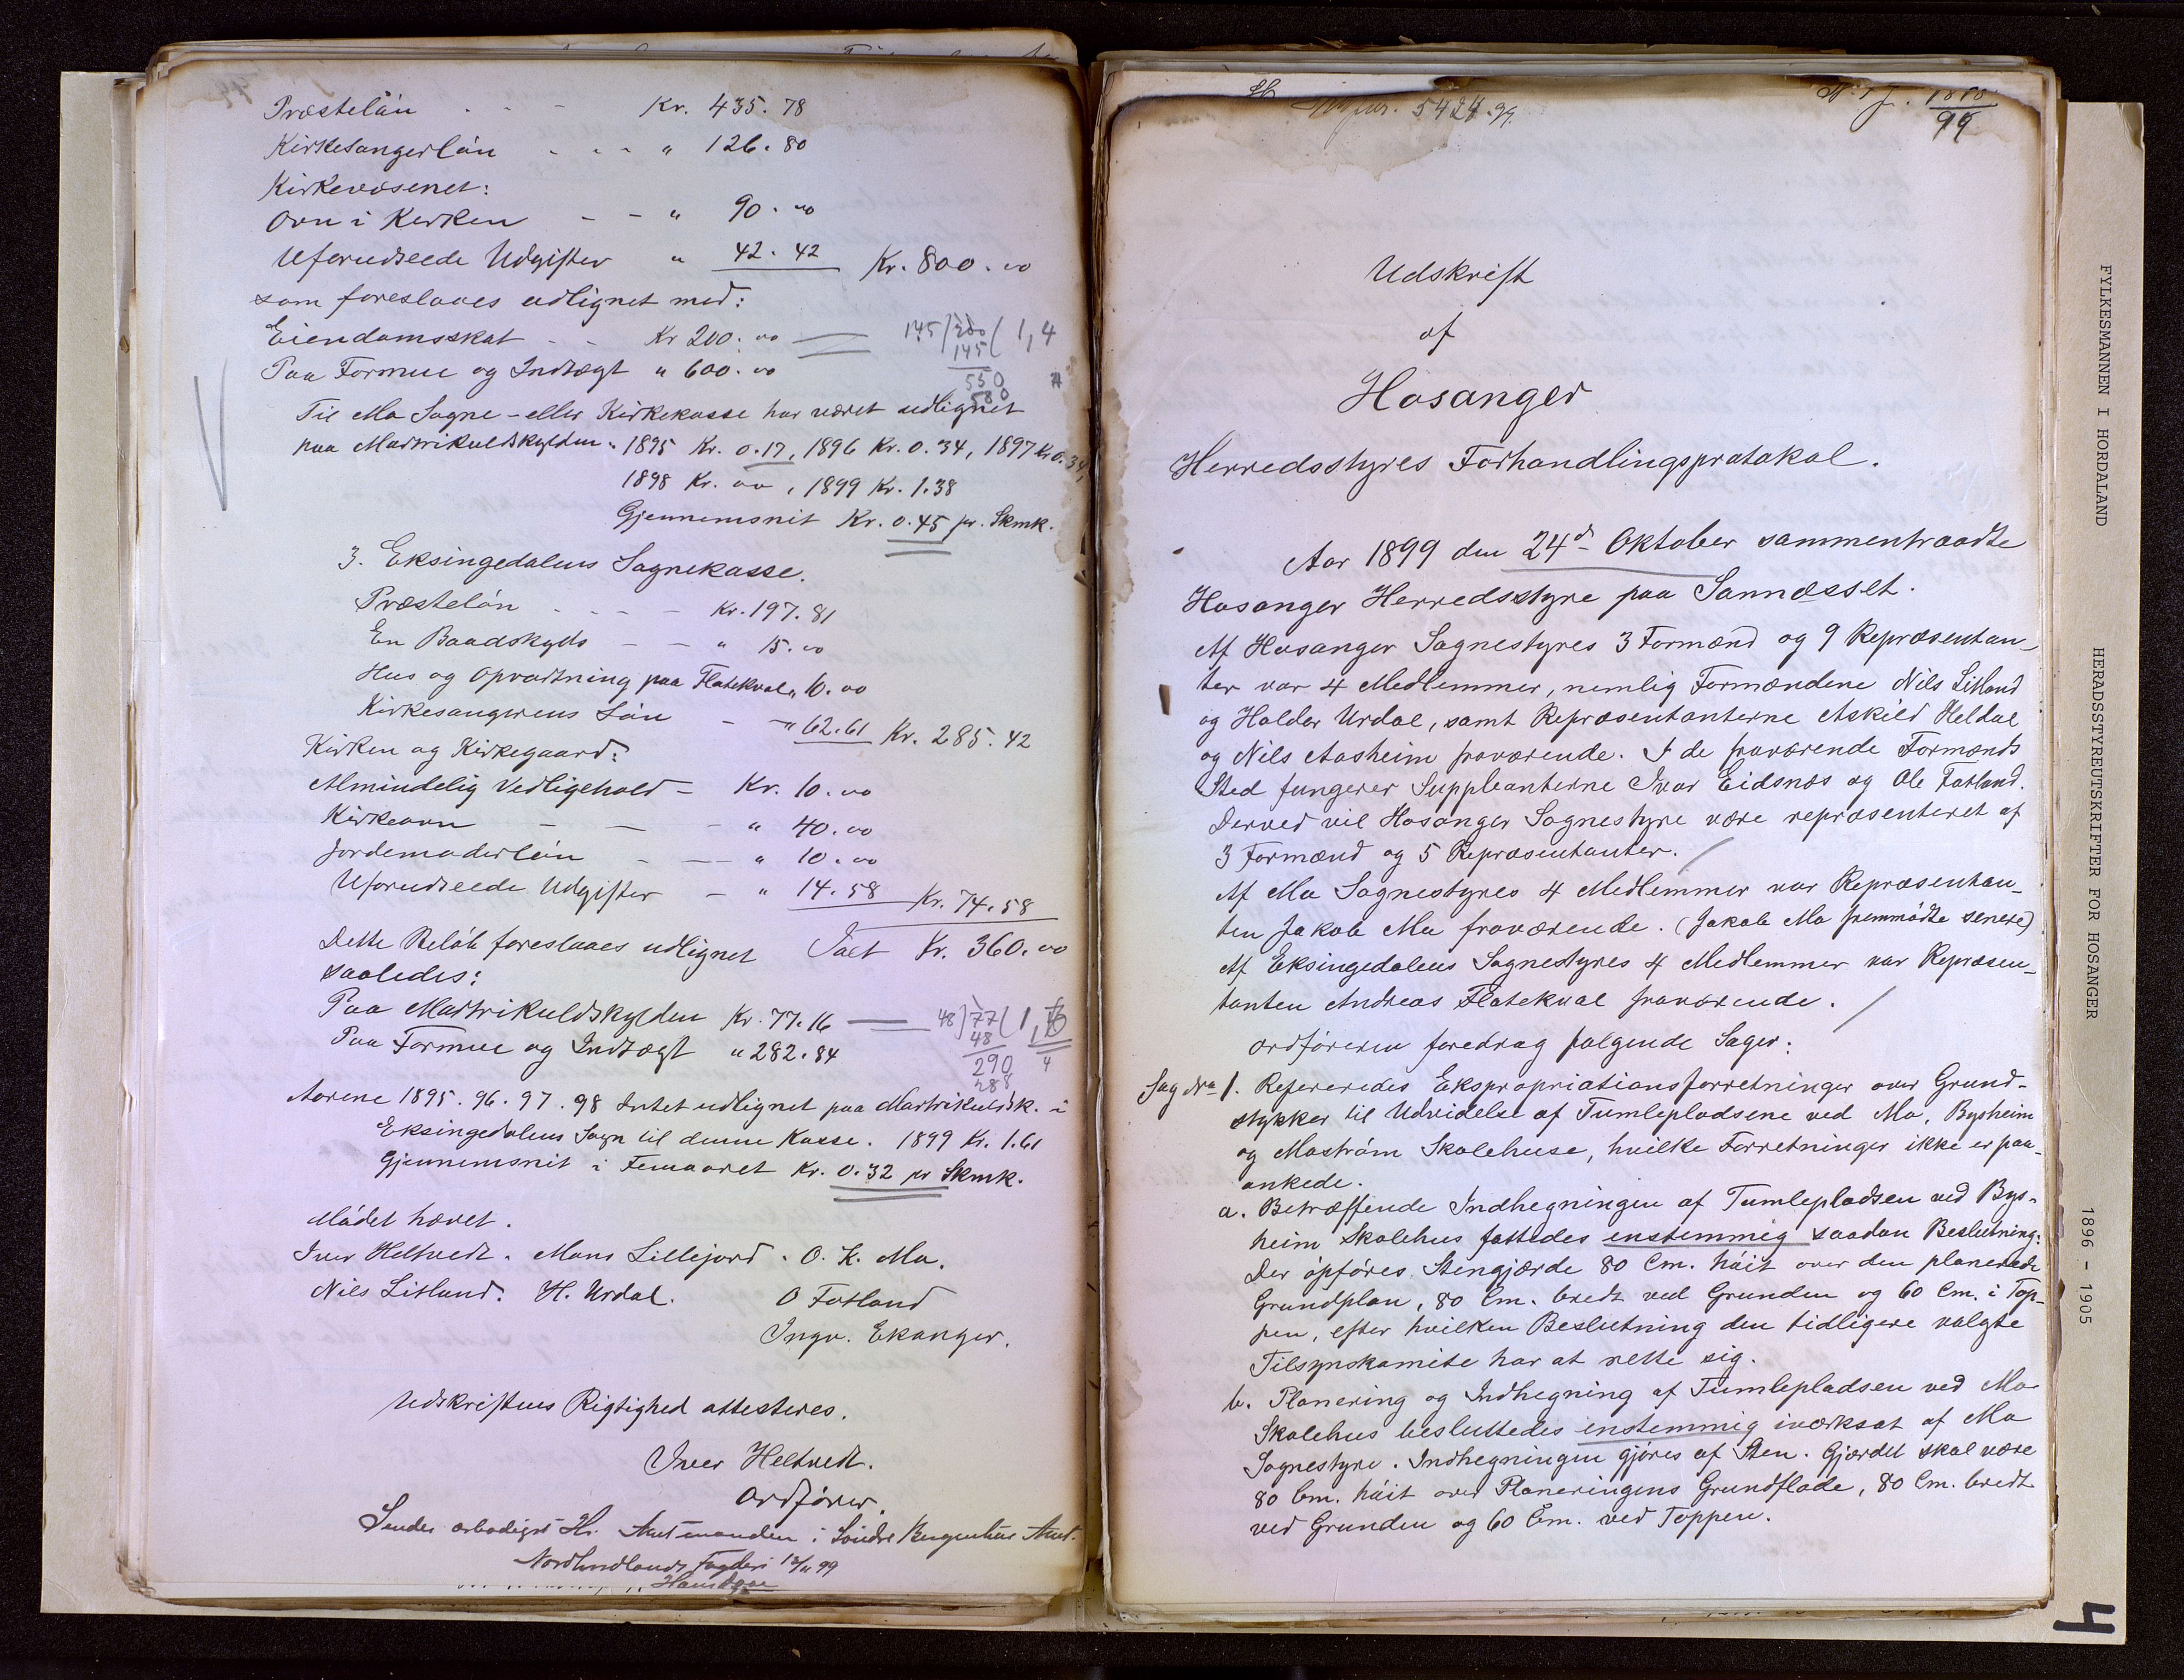 Præstelön . . - Kr. 435. 78
Kirkesangerlön . . - " 126. 80
Kirkevæsenet:
Ovn i Kirken - - " 90. 00
Uforudseede Udgifter " 42. 42 Kr. 800. 00
som foreslaaes udlignet med:
Eiendomsskat - - Kr 200. 00
Paa Formue og Indtægt " 600. 00
145)200(1,4
145
550
580
Til Mo Sogne- eller Kirkekasse har været udlignet
paa Matrikulskylden: 1895 Kr. 0.17, 1896 Kr. 0.34, 1897 Kr 0.34,
1898 Kr. 00, 1899 Kr. 1.38
Gjennemsnit Kr. 0.45 pr. Skmk.
3. Eksingedalens Sognekasse.
Præstelön . - - - Kr. 197. 81
En Baadskyds - - " 15. 00
Hus og Opvartning paa Flatekval " 10. 00
Kirkesangerens Lön - - " 62.61 Kr. 285. 42
Kirken og Kirkegaard:
Almindelig Vedligehold - Kr. 10. 00
Kirkeovn - - - " 40. 00
Jordemoderlön - - - " 10. 00
Uforudseede Udgifter - " 14. 58 Kr. 74. 58
Dette Belöb foreslaaes udlignet Ialt Kr. 360. 00
saaledes:
Paa Matrikulskylden Kr. 77. 16
Paa Formue og Indtægt " 282. 84
48)77(1,
48
290
288
Aarene 1895. 96. 97. 98 Intet udlignet paa Matrikulsk. i
Eksingedalens Sogn til denne Kasse. 1899 Kr. 1.61
Gjennemsnit i Femaaret Kr. 0.32 pr Skmk.
Mödet hævet.
Iver Heltvedt. Mons Lillejord. O. K. Mo.
Nils Litland. H. Urdal. O Fotland
Ingv. Ekanger.
Udskriftens Rigtighed attesteres.
Iver Heltvedt.
Ordförer.
Sendes ærbødigst Hr. Amtmanden i Söndre Bergenhus Amt.
Nordhordlands Fogderi 13/11 99
5424.99.
99
Udskrift
af
Hosanger
Herredsstyres Forhandlingsprotokol.
Aar 1899 den 24de Oktober sammentraadte
Hosanger Herredsstyre paa Sannæsset.
Af Hosanger Sognestyres 3 Formænd og 9 Repræsentan-
ter var 4 Medlemmer, nemlig Formændene Nils Litland
og Haldor Urdal, samt Repræsentanterne Askild Heldal
og Nils Aasheim fraværende. I de fraværende Formænds
Sted fungerer Suppleanterne Ivar Eidsnæs og Ole Fotland.
Derved vil Hosanger Sognestyre være repræsenteret af
3 Formænd og 5 Repræsentanter.
Af Mo Sognestyres 4 Medlemmer var Repræsentan-
ten Jakob Mo fraværende. (Jakob Mo fremmödte senere)
Af Eksingedalens Sognestyres 4 Medlemmer var Repræsen-
tanten Andreas Flatekval fraværende.
Ordföreren foredrog fölgende Sager:
Sag No 1. Refereredes Ekspropriationsforretninger over Grund-
stykker til Udvidelse af Tumlepladsene ved Mo, Bysheim
og Moström Skolehuse, hvilke Forretninger ikke er paa-
ankede.
a. Betræffende Indhegningen af Tumlepladsen ved Bys-
heim Skolehus fattedes enstemmig saadan Beslutning:
Der opföres Stengjærde 80 Cm. höit over den planerede
Grundplan, 80 Cm. bredt ved Grunden og 60 Cm. i Top-
pen, efter hvilken Beslutning den tidligere valgte
Tilsynskomite har at rette sig.
b. Planering og Indhegning af Tumlepladsen ved Mo
Skolehus besluttedes enstemmig iværksat af Mo
Sognestyre. Indhegningen gjöres af Sten. Gjærdet skal være
80 Cm. höit over Planeringens Grundflade, 80 Cm. bredt
ved Grunden og 60 Cm. ved Toppen.
FYLKESMANNEN I HORDALAND HERADSSTYREUTSKRIFTER FOR HOSANGER 1896 - 1905
4